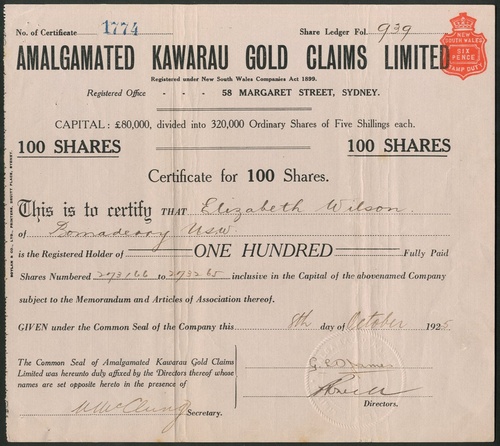 No. of Certificate 1774 Share Ledger Fol. 939
AMALGAMATED KAWARAU GOLD CLAIMS LIMITED
NEW SOUTH WALES SIX PENCE STAMP DUTY
Registered under New South Wales Companies Act 1899.
Registered Office - - - 58 MARGARET STREET, SYDNEY.
CAPITAL: £80,000, divided into 320,000 Ordinary Shares of Five Shillings each.
100 SHARES 100 SHARES
Certificate for 100 Shares.
This is to certify THAT Elizabeth Wilson
of Bomaderry NSW
is the Registered Holder of ONE HUNDRED Fully Paid
Shares Numbered 273166 to 273265 inclusive in the Capital of the abovenamed Company
subject to the Memorandum and Articles of Association thereof.
GIVEN under the Common Seal of the Company this 8th day of October 1925
The Common Seal of Amalgamated Kawarau Gold
Claims Limited was hereunto duly affixed by the Directors thereof whose
names are set opposite hereto in the presence of
Secretary.
Directors.